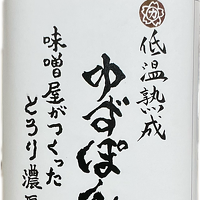 低温熟成
ゆずぽん
味噌屋がつくった
とろり濃